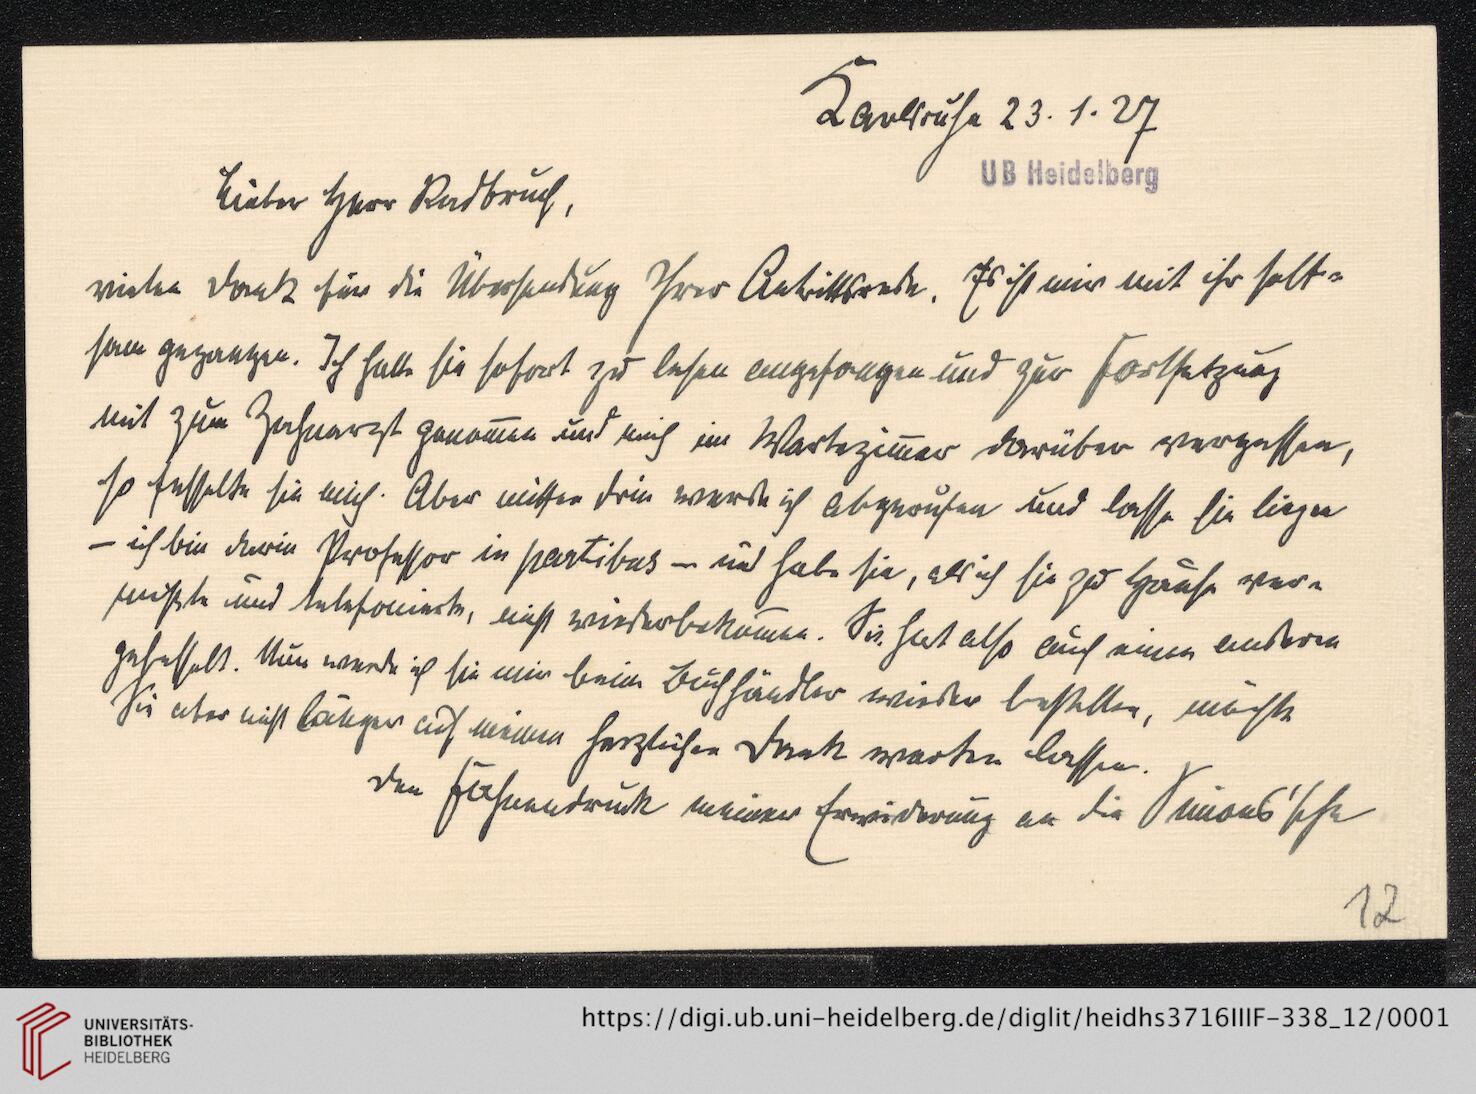 Karlsruhe 23. 1. 27
UB Heidelberg
Lieber Herr Radbruch,
vielen Dank für die Übersendung Ihrer Antrittsrede. Es ist mir mit ihr selt-
sam gegangen. Ich hatte sie sofort zu lesen angefangen und zur Fortsetzung
mit zum Zahnarzt genom̅en und mich im Wartezim̅er darüber vergessen,
so fesselte sie mich. Aber mitten drin werde ich abgerufen und lasse sie liegen
– ich bin darin Professor in partibus – und habe sie, als ich sie zu Hause ver-
mißte und telefonierte, nicht wiederbekom̅en. Sie hat also auch einen anderen
gefesselt. Nun werde ich sie mir beim Buchhändler wieder bestellen, möchte
Sie aber nicht länger auf meinen herzlichen Dank warten lassen.
Den Fahnendruck meiner Erwiderung an die Simons'sche
12
UNIVERSITÄTS-
BIBLIOTHEK
HEIDELBERG
https://digi.ub.uni-heidelberg.de/diglit/heidhs3716IIIF-338_12/0001